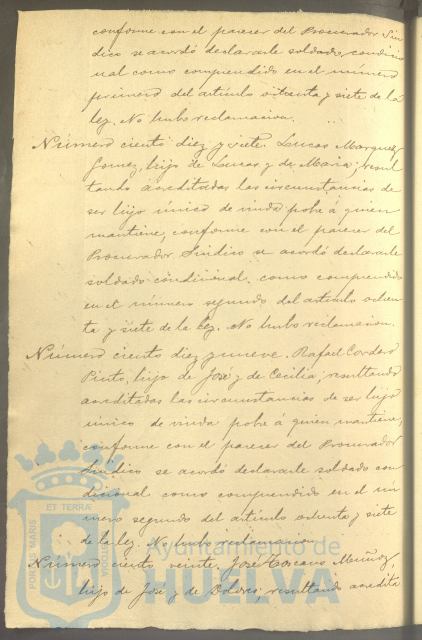 conforme con el parecer del Procurador Sin
dico se acordó declararle soldado condicio
nal como comprendido en el número
primero del artículo ochenta y siete de la
ley. No hubo reclamacion.
Número ciento diez y siete. Lucas Marquez
Gomez, hijo de Lucas y de Maria; resul
tando acreditadas las circunstancias de
ser hijo único de viuda pobre á quien
mantiene, conforme con el parecer del
Procurador Sindico se acordó declararle
soldado condicional, como comprendido
en el número segundo del artículo ochen
ta y siete de la ley. No hubo reclamacion.
Número ciento diez y nueve. Rafael Cordero
Pinto, hijo de José y de Cecilia; resultando
acreditadas las circunstancias de ser hijo
único de viuda pobre á quien mantiene,
conforme con el parecer del Procurador
Sindico se acordó declararle soldado con
dicional como comprendido en el nú
mero segundo del artículo ochenta y siete
de la ley. No hubo reclamacion.
Número ciento veinte. José Toscano Muñoz,
hijo de José y de Dolores; resultando acredita
PORTUS MARIS
ET TERRAE
CUSTODIA
Ayuntamiento de
HUELVA